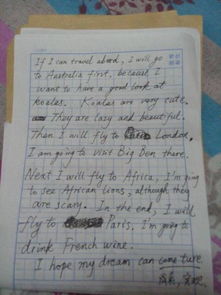 If I can travel abord, I will go
to Australia first, because I
want to have a good look at
koalas. Koalas are very cute.
They are lazy and beautiful.
Then I will fly to London,
I am going to visit Big Ben there.
Next I will fly to Africa, I'm going
to see African lions, although they
are scary. In the end, I will
fly to Paris, I'm going to
drink French wine.
I hope my dream can come ture.